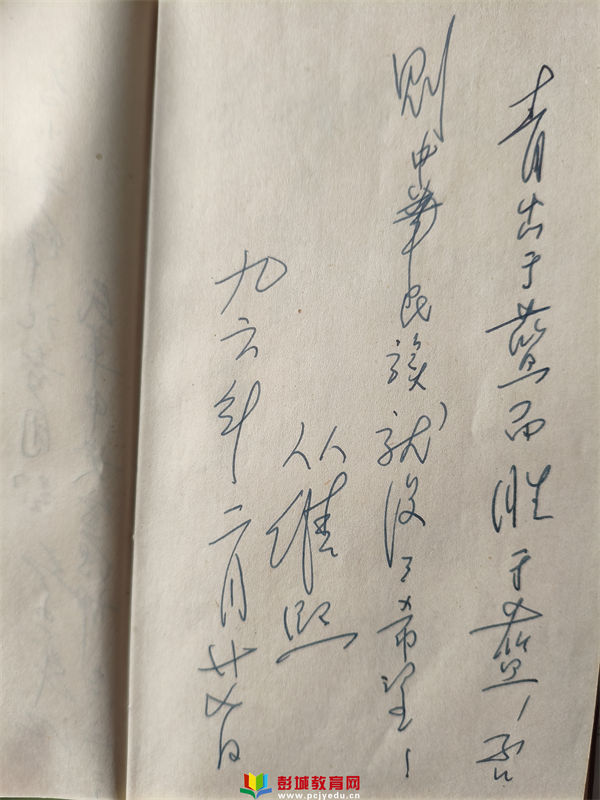 青出于蓝而胜于蓝，否
则中華民族就没了希望！
从维熙
九六年二月廿日
彭城教育网
www.pcjyedu.cn